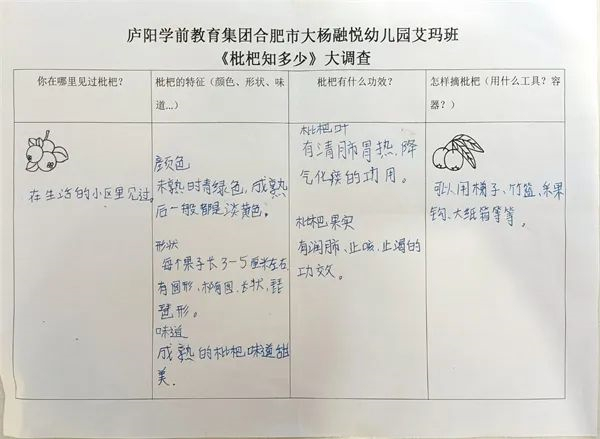 庐阳学前教育集团合肥市大杨融悦幼儿园艾玛班
《枇杷知多少》大调查
你在哪里见过枇杷？
在生活的小区里见过。
枇杷的特征（颜色、形状、味
道...）
颜色
未熟时青绿色，成熟
后一般都是淡黄色。
形状
每个果子长3-5厘米左右
有圆形、椭圆、长状，琵
琶形。
味道
成熟的枇杷味道甜
美.
枇杷有什么功效？
枇杷叶
有清肺胃热，降
气化痰的功用。
枇杷果实
有润肺、止咳、止渴的
功效。
怎样摘枇杷（用什么工具？容
器？）
可以用梯子、竹篮、采果
钩、大纸箱等等。